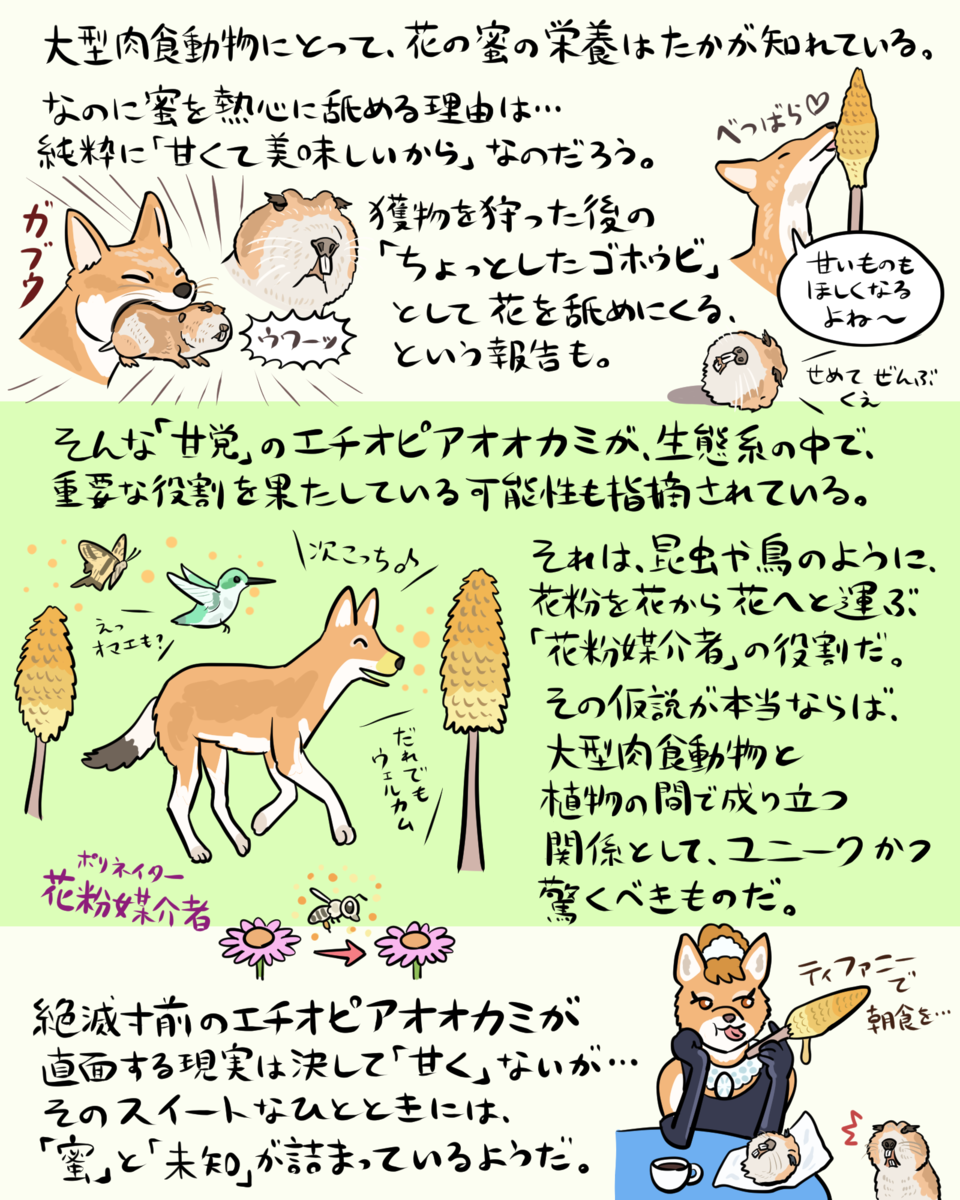 大型肉食動物にとって、花の蜜の栄養はたかが知れている。
なのに蜜を熱心に舐める理由は…
純粋に「甘くて美味しいから」なのだろう。
べつばら♡
ガブウ
ウワーッ
獲物を狩った後の
「ちょっとしたゴホウビ」
として花を舐めにくる、
という報告も。
甘いものも
ほしくなる
よね〜
せめて ぜんぶ
くえ
そんな「甘党」のエチオピアオオカミが、生態系の中で、
重要な役割を果たしている可能性も指摘されている。
次こっち♪
えっ
オマエも?
だれでも
ウェルカム
それは、昆虫や鳥のように、
花粉を花から花へと運ぶ
「花粉媒介者」の役割だ。
その仮説が本当ならば、
大型肉食動物と
植物の間で成り立つ
関係として、ユニークかつ
驚くべきものだ。
ポリネイター
花粉媒介者
ティファニーで
朝食を…
絶滅寸前のエチオピアオオカミが
直面する現実は決して「甘く」ないが…
そのスイートなひとときには、
「蜜」と「未知」が詰まっているようだ。